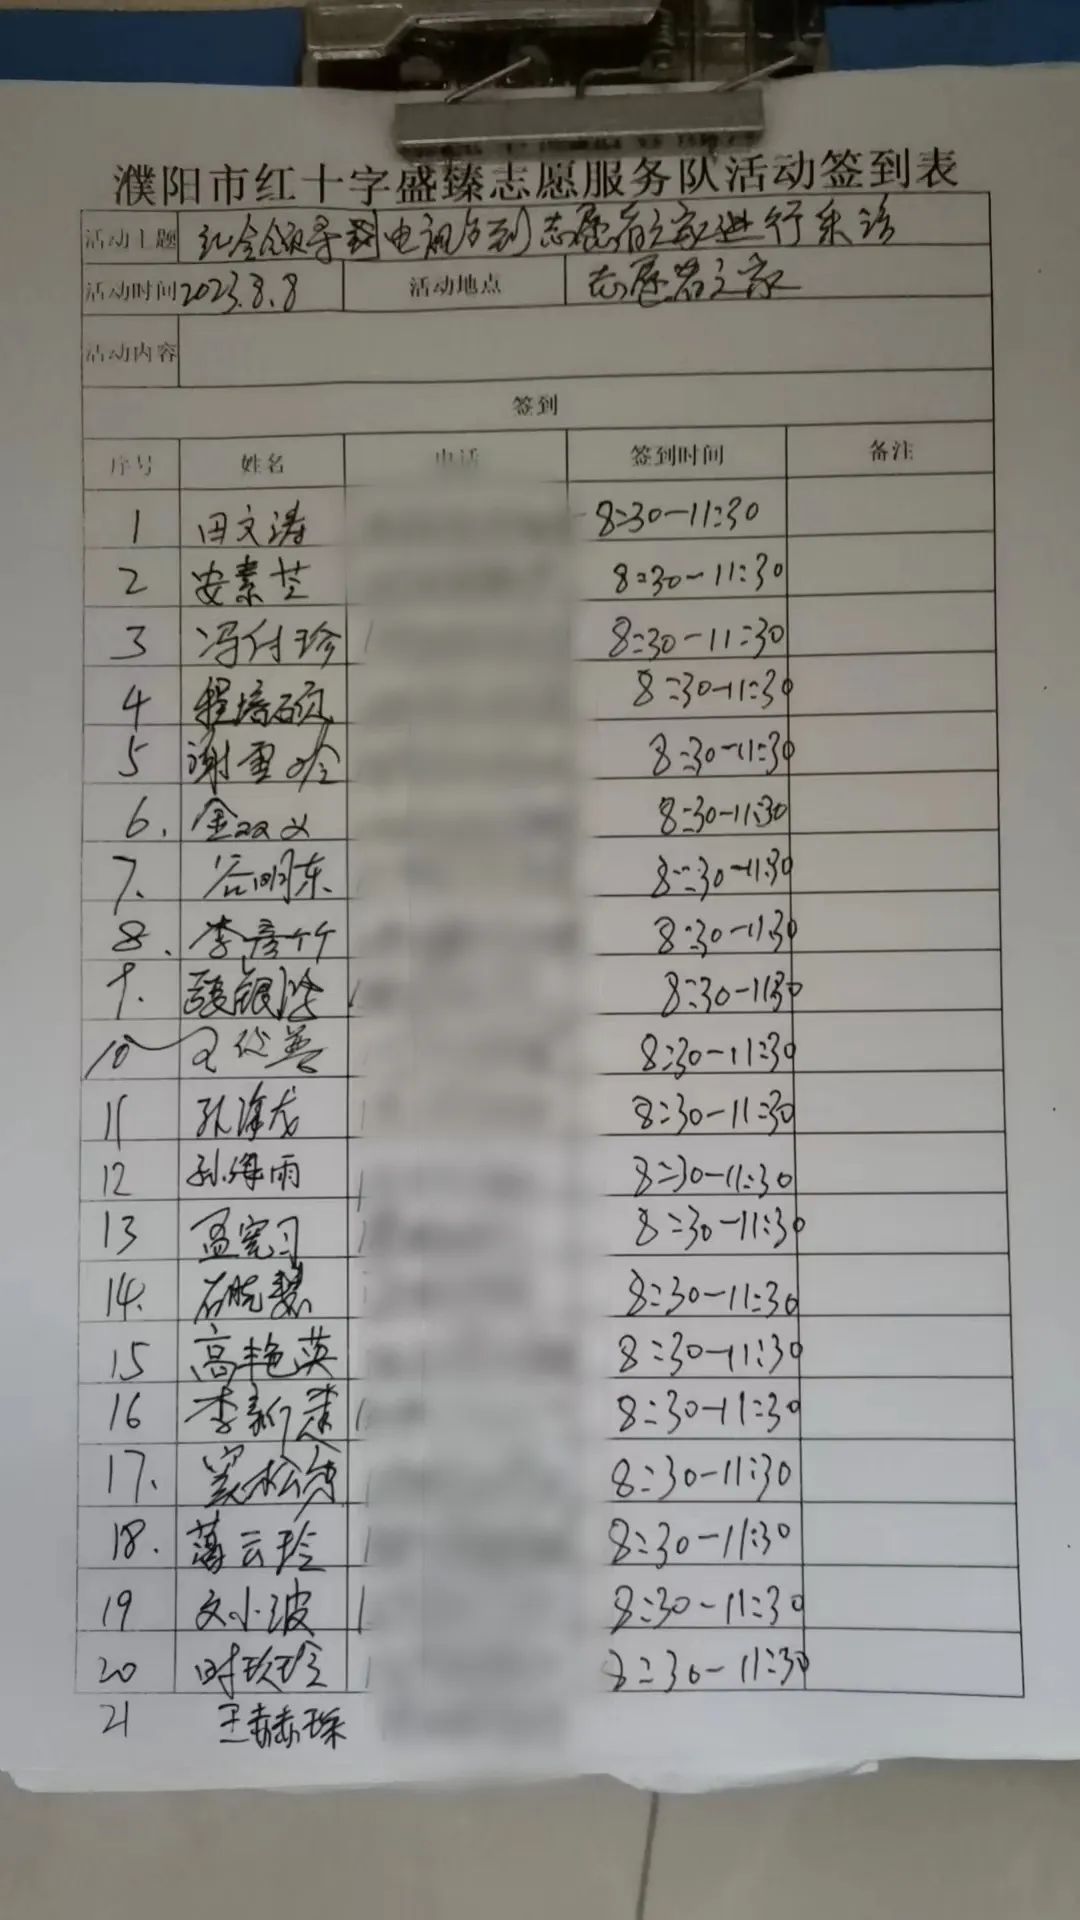 濮阳市红十字盛臻志愿服务队活动签到表
活动主题 红会领导到电视台到志愿者之家进行采访
活动时间 2023.8.8 活动地点 志愿者之家
活动内容
签到
序号 姓名 电话 签到时间 备注
1 田文涛 8:30-11:30
2 安素芝 8:30-11:30
3 冯付珍 8:30-11:30
4 程培硕 8:30-11:30
5 谢雪玲 8:30-11:30
6. 金双义 8:30-11:30
7. 谷明东 8:30-11:30
8. 李彦竹 8:30-11:30
9. 银 8:30-11:30
10 王 善 8:30-11:30
11 孔 龙 8:30-11:30
12 孙海雨 8:30-11:30
13 孟宪习 8:30-11:30
14. 石晓慧 8:30-11:30
15 高艳英 8:30-11:30
16 李新 8:30-11:30
17. 窦松 8:30-11:30
18. 云玲 8:30-11:30
19 文小波 8:30-11:30
20 时玖玲 8:30-11:30
21 王赫琛